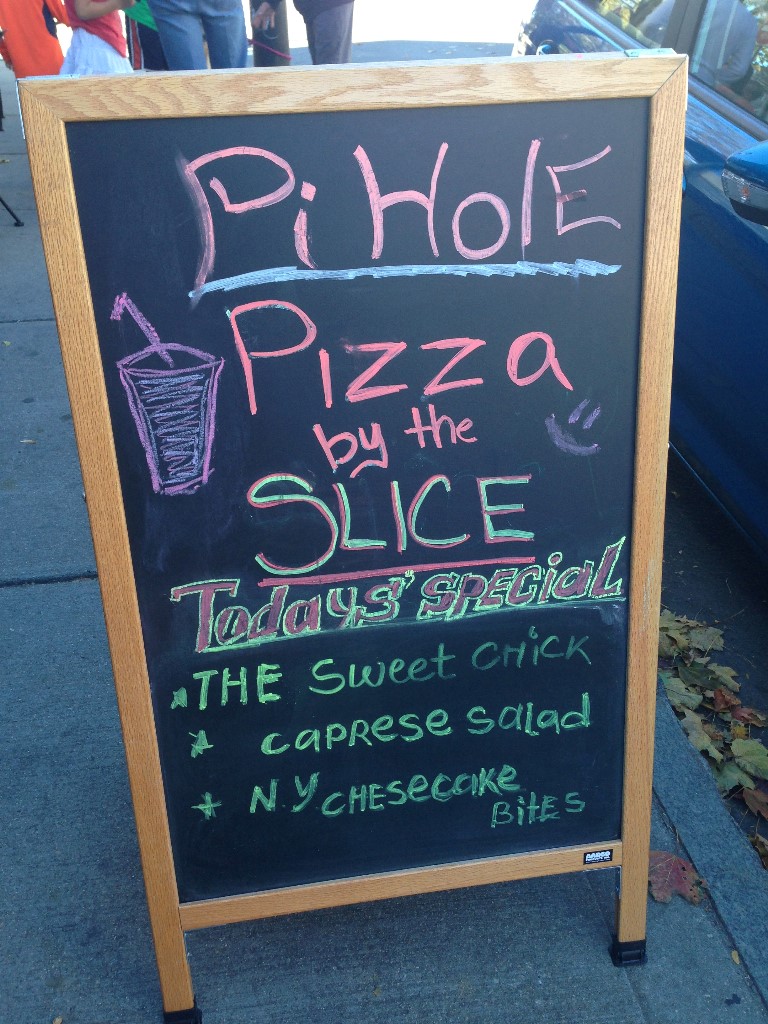 Pi HOlE
Pizza
by the
SLICE
Todays' SPECial
* THE Sweet CHiCK
* CAPRESE Salad
* N.Y CHESeCaKe
BitES